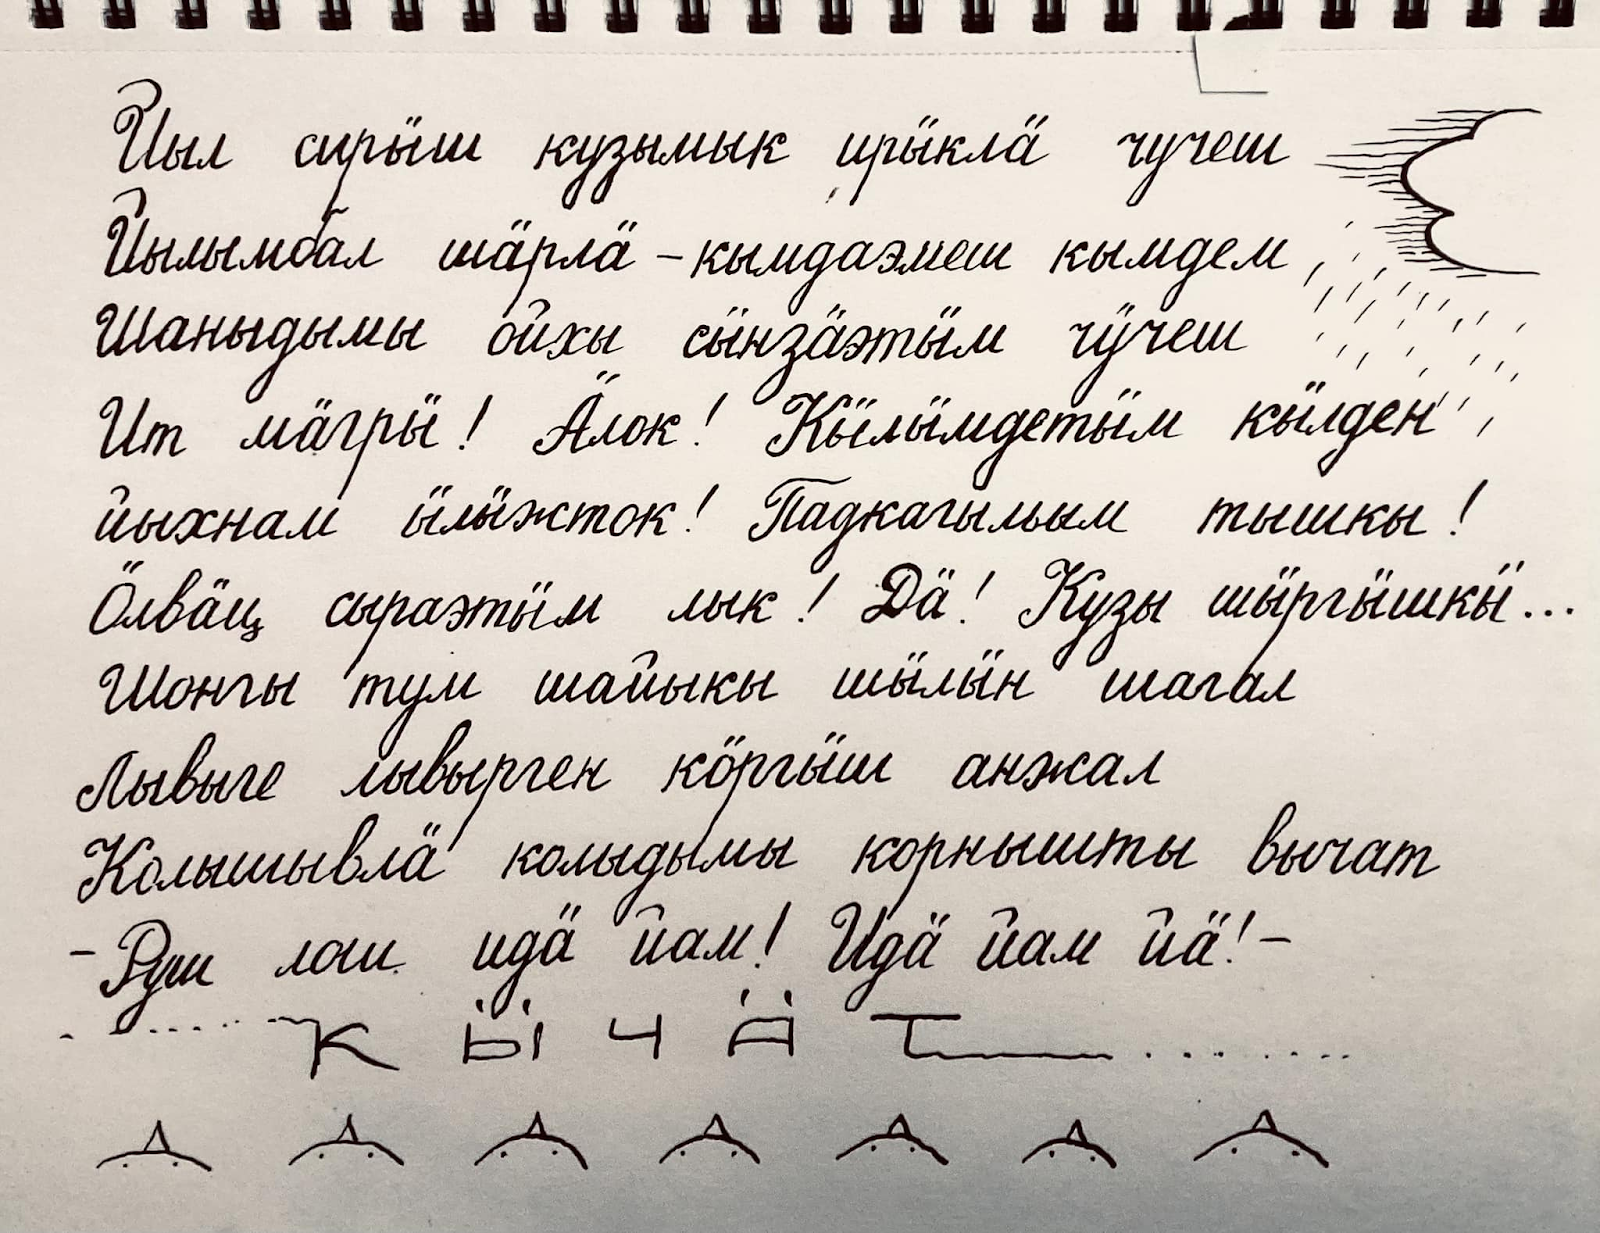 Йыл сирӹш кузымык ирӹклӓ чучеш
Йылымбал шӓрлӓ - кымдаэмеш кымдем,
Шаныдымы ойхы сӹнзӓэтӹм чӱчеш
Ит мӓгрӹ! Ӓлок! Кӹлӹмдетӹм кӹлден
йыхнам ӹлӹжток! Падкагыльым тышкы!
Ӧлвӓц сыраэтӹм лык! Дӓ! Кузы шӹргӹшкӹ...
Шонгы тум шайыкы шӹлӹн шагал
Лывыге лывырген кӧргӹш анжал
Колышывлӓ колыдымы корнышты вычат
- Руш лош идӓ йам! Идӓ йам йӓ! -
КӸЧӒТ